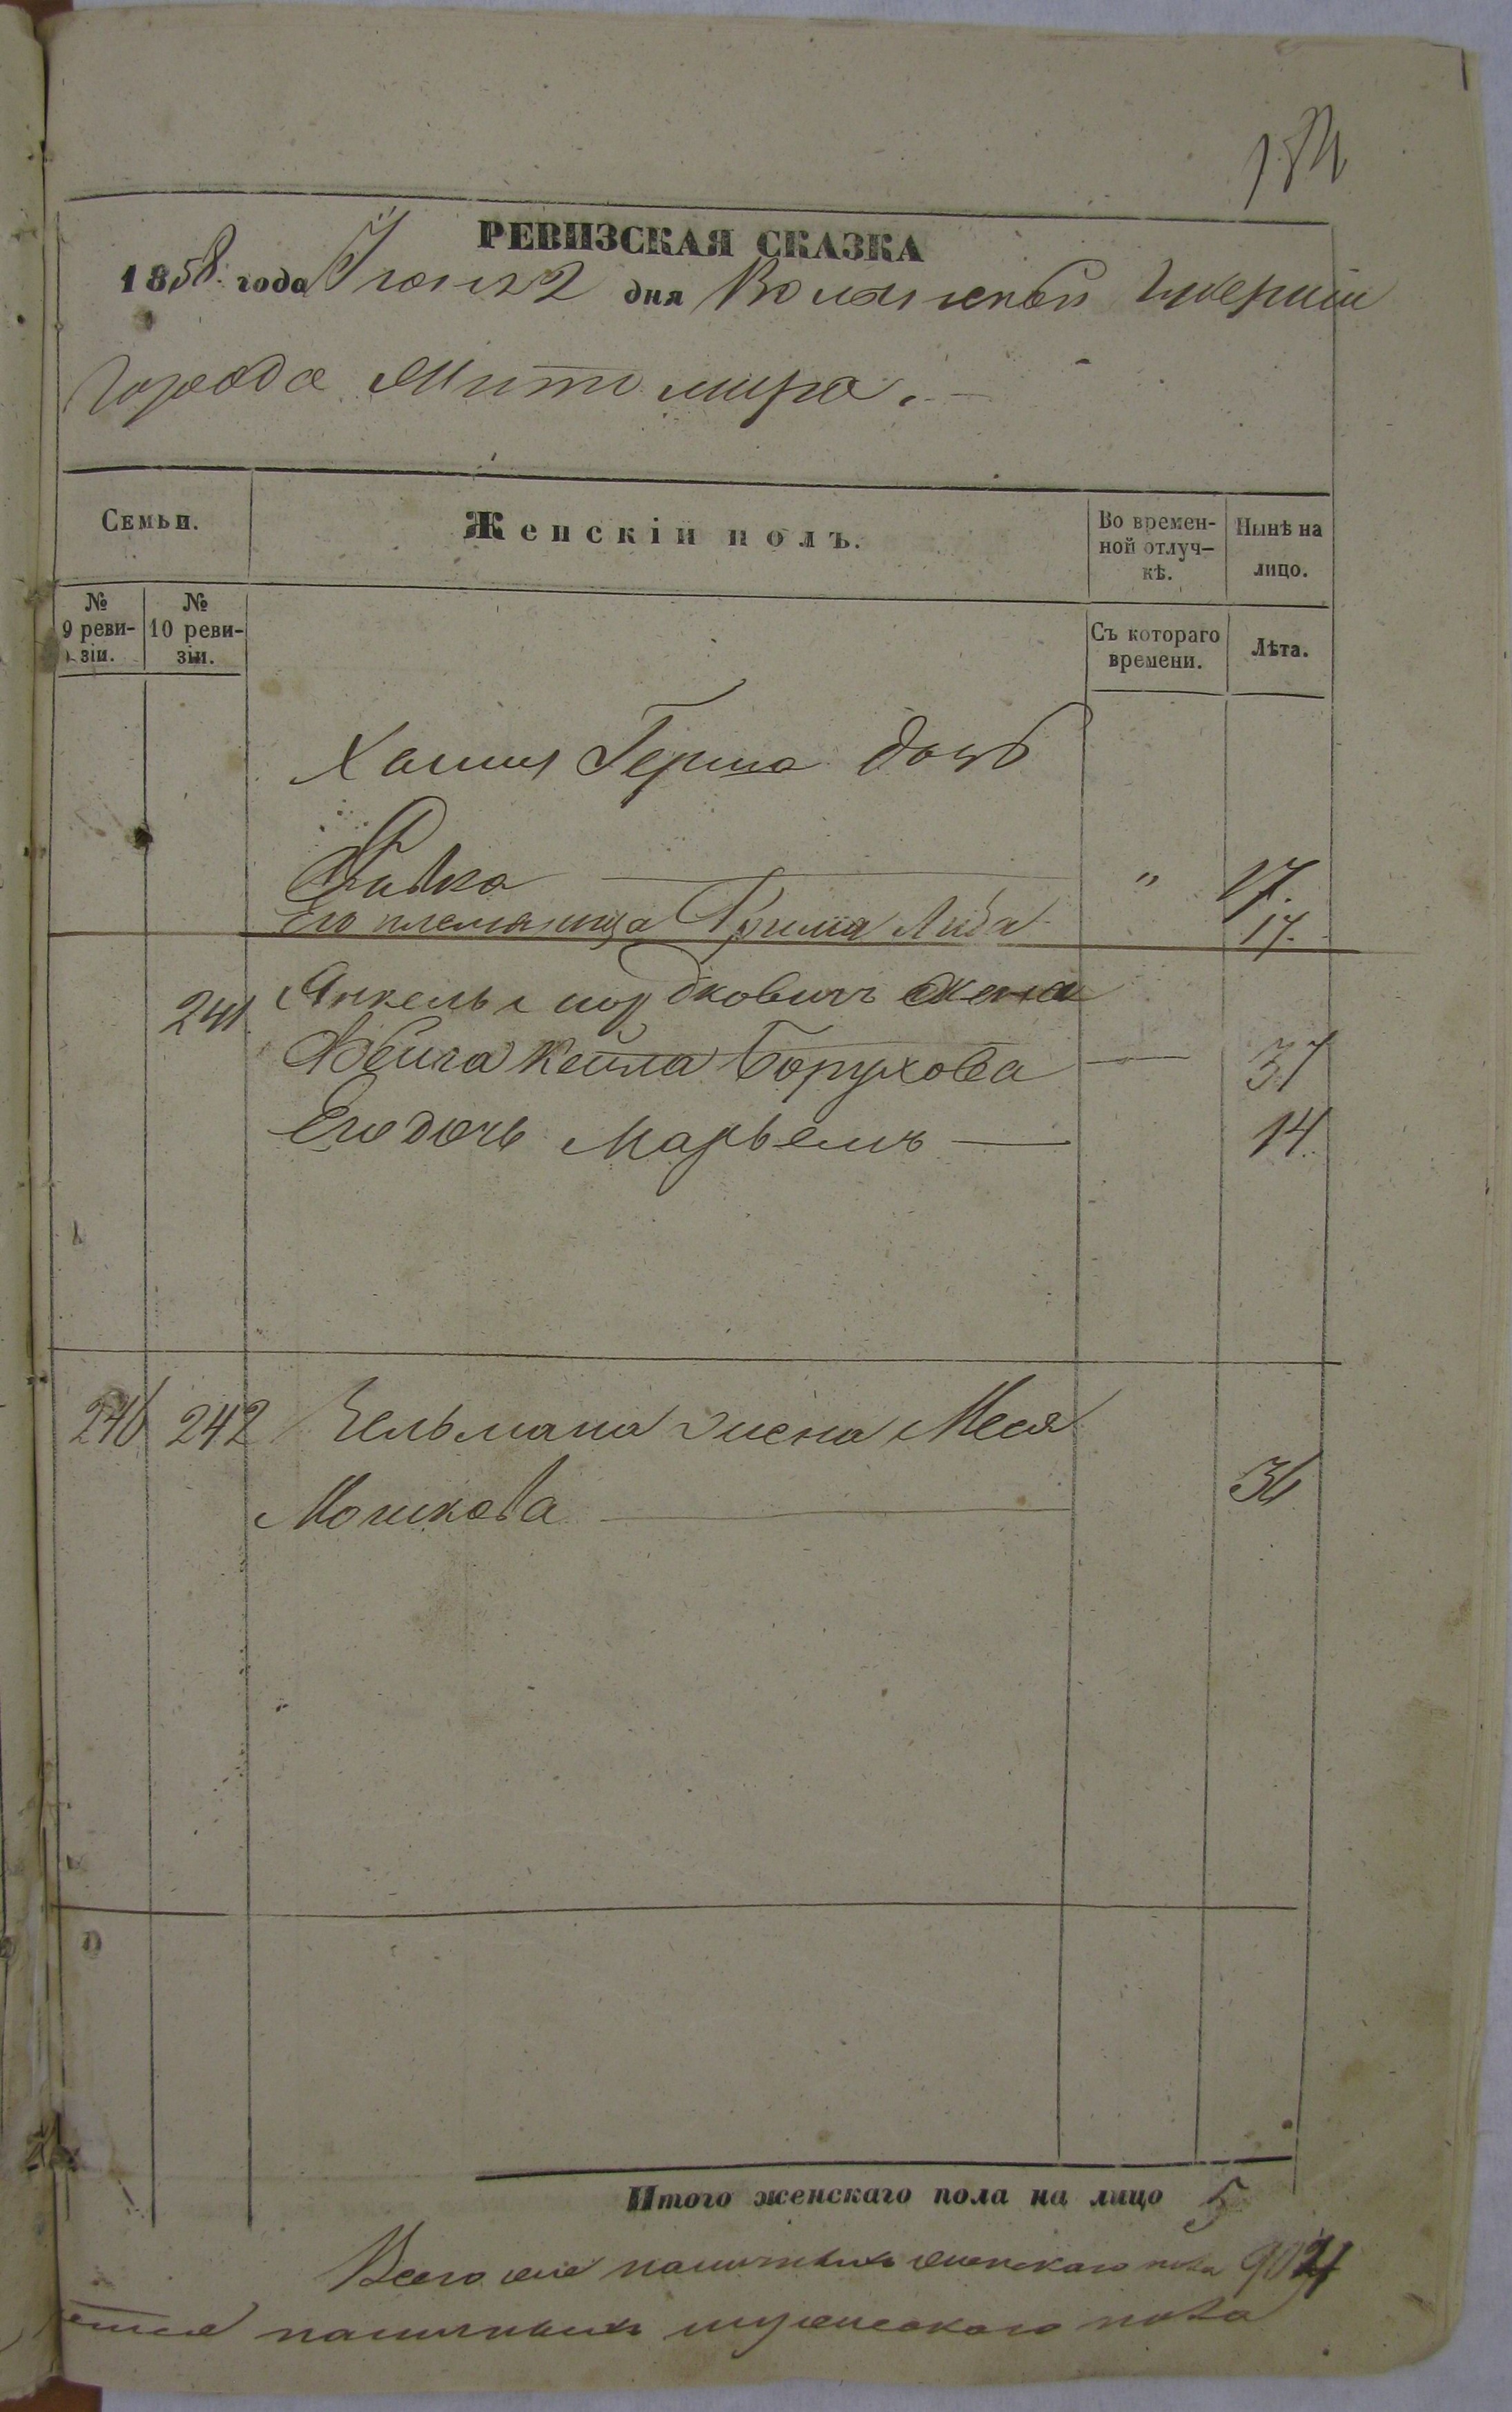 184
РЕВИЗСКАЯ СКАЗКА
1858 года Іюня 2 дня Волынской Губерніи
города Житомира.
Семьи.
Женскій полъ.
Во времен-
ной отлуч-
кѣ.
Нынѣ на
лицо.
№
9 реви-
зіи.
№
10 реви-
зіи.
Съ котораго
времени.
Лѣта.
Хаима Герша дочь
Ривка " 17.
Его племяница Фрима Люба 17.
241 Янкеля жена
Двейга Кейла Борухова 37
Его дочь Марьемъ 14.
240 242 Зельмана жена Меся
Мошкова 36
Итого женскаго пола на лицо 5
Всего наличныхъ женскаго пола
наличныхъ мужескаго пола